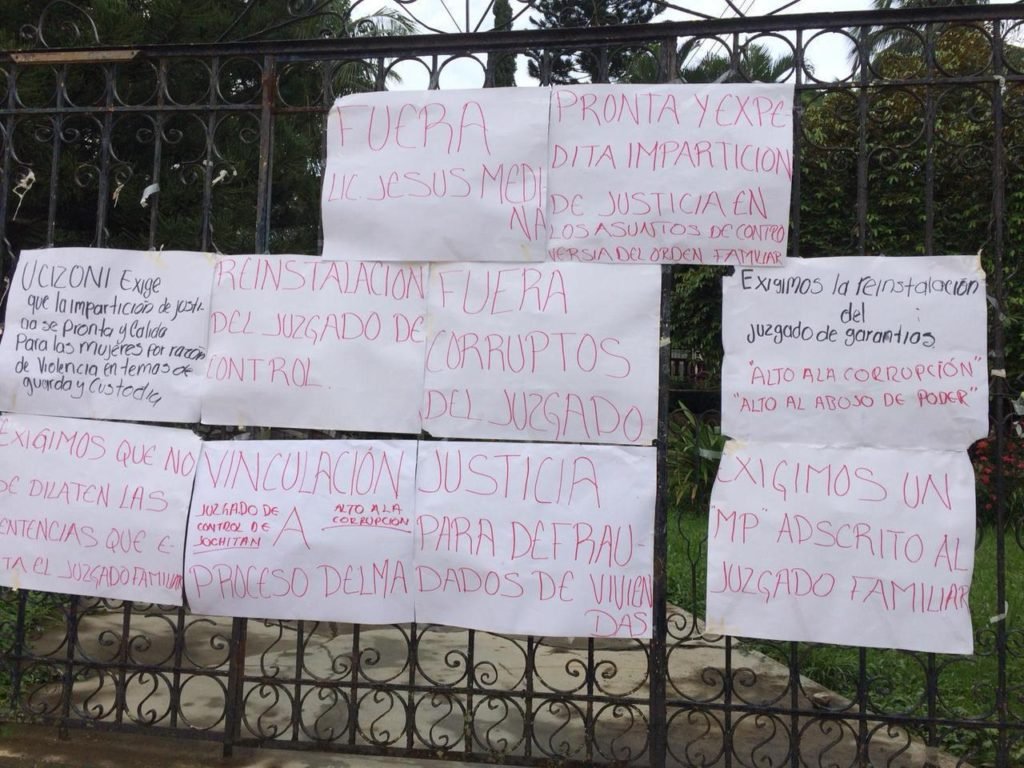 FUERA
LIC. JESUS MEDI
NA
PRONTA Y EXPE-
DITA IMPARTICION
DE JUSTICIA EN
LOS ASUNTOS DE CONTRO
VERSIA DEL ORDEN FAMILIAR
UCIZONI Exige
que la impartición de justi-
na se Pronta y Calida
Para las mujéres por razón
de Violencia en temas de
guarda y Custodia
REINSTALACION
DEL JUZGADO DE
CONTROL.
FUERA
CORRUPTOS
DEL JUZGADO
Exigimos la reinstalación
del
juzgado de garantias.
"ALTO A LA CORRUPCIÓN"
"ALTO AL ABUSO DE PODER"
EXIGIMOS QUE NO
SE DILATEN LAS
SENTENCIAS QUE E-
TA EL JUZGADO FAMILIAR
VINCULACIÓN
JUZGADO DE
CONTROL DE
JUCHITAN
A
ALTO A LA
CORRUPCION
PROCESO DELMA
JUSTICIA
PARA DEFRAU-
DADOS DE VIVIEN
DAS
EXIGIMOS UN
"MP" ADSCRITO AL
JUZGADO FAMILIAR